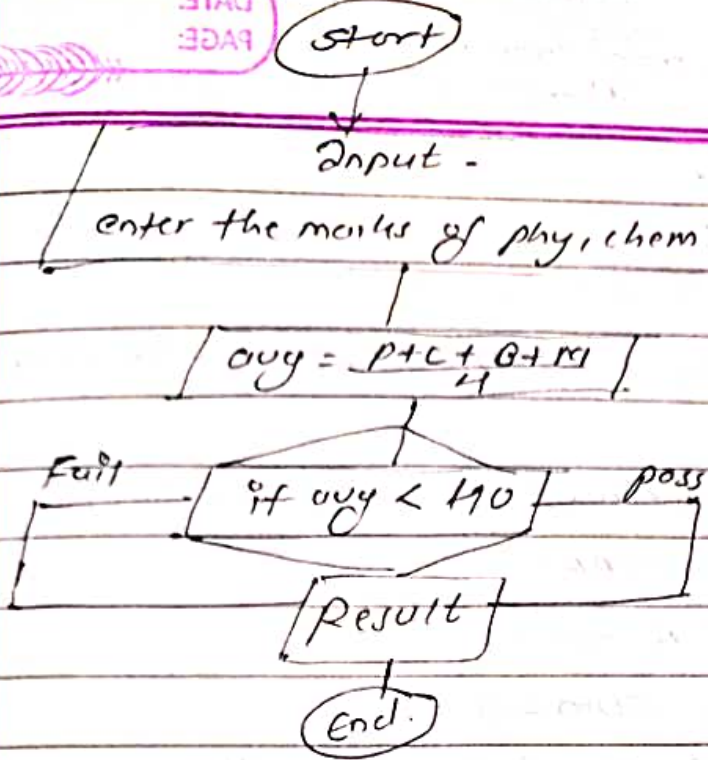 DATE:
PAGE:
start
Input -
enter the marks of phy, chem
avg = P+C+B+M
4
Fail
if avg < 40
pass
Result
End.